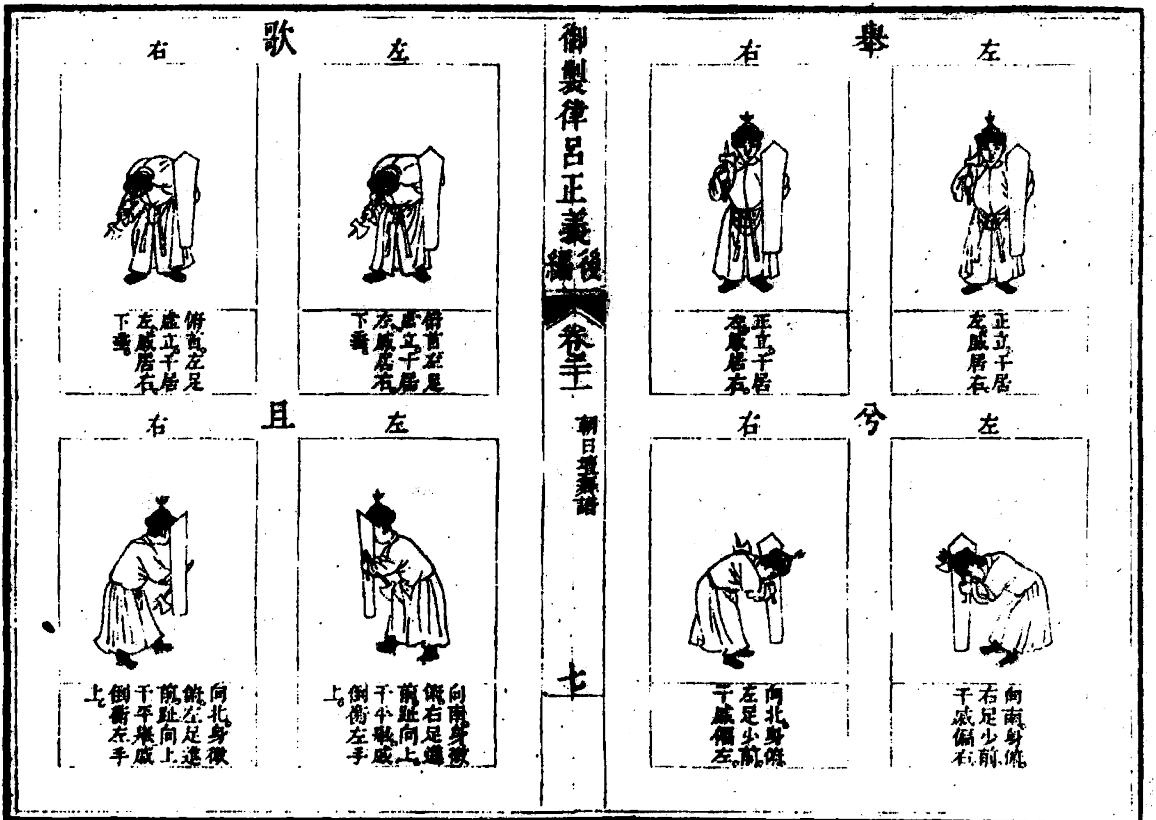 舉
左
正立。干居
左。戚居右
右
正立。干居
左。戚居右。
兮
左
向南。身俯。
右足少前
干戚偏右
右
向北。身俯
左足少前。
干戚偏左。
御製律呂正義後編
卷
朝日壇舞譜
七
歌
左
俯首。右足
虛立。干居
左。戚居右。
下垂。
右
俯首。左足
虛立。干居
左。戚居右。
下垂。
且
左
向南。身微
俯。右足進
前。趾向上。
干平舉。戚
倒衡左手
上。
右
向北。身微
俯。左足進
前。趾向上
干平舉戚
倒衡左手
上。